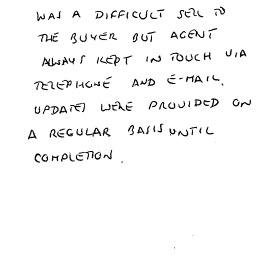 WAS A DIFFICULT SELL TO
THE BUYER BUT AGENT
ALWAYS KEPT IN TOUCH VIA
TELEPHONE AND E-MAIL.
UPDATES WERE PROVIDED ON
A REGULAR BASIS UNTIL
COMPLETION.